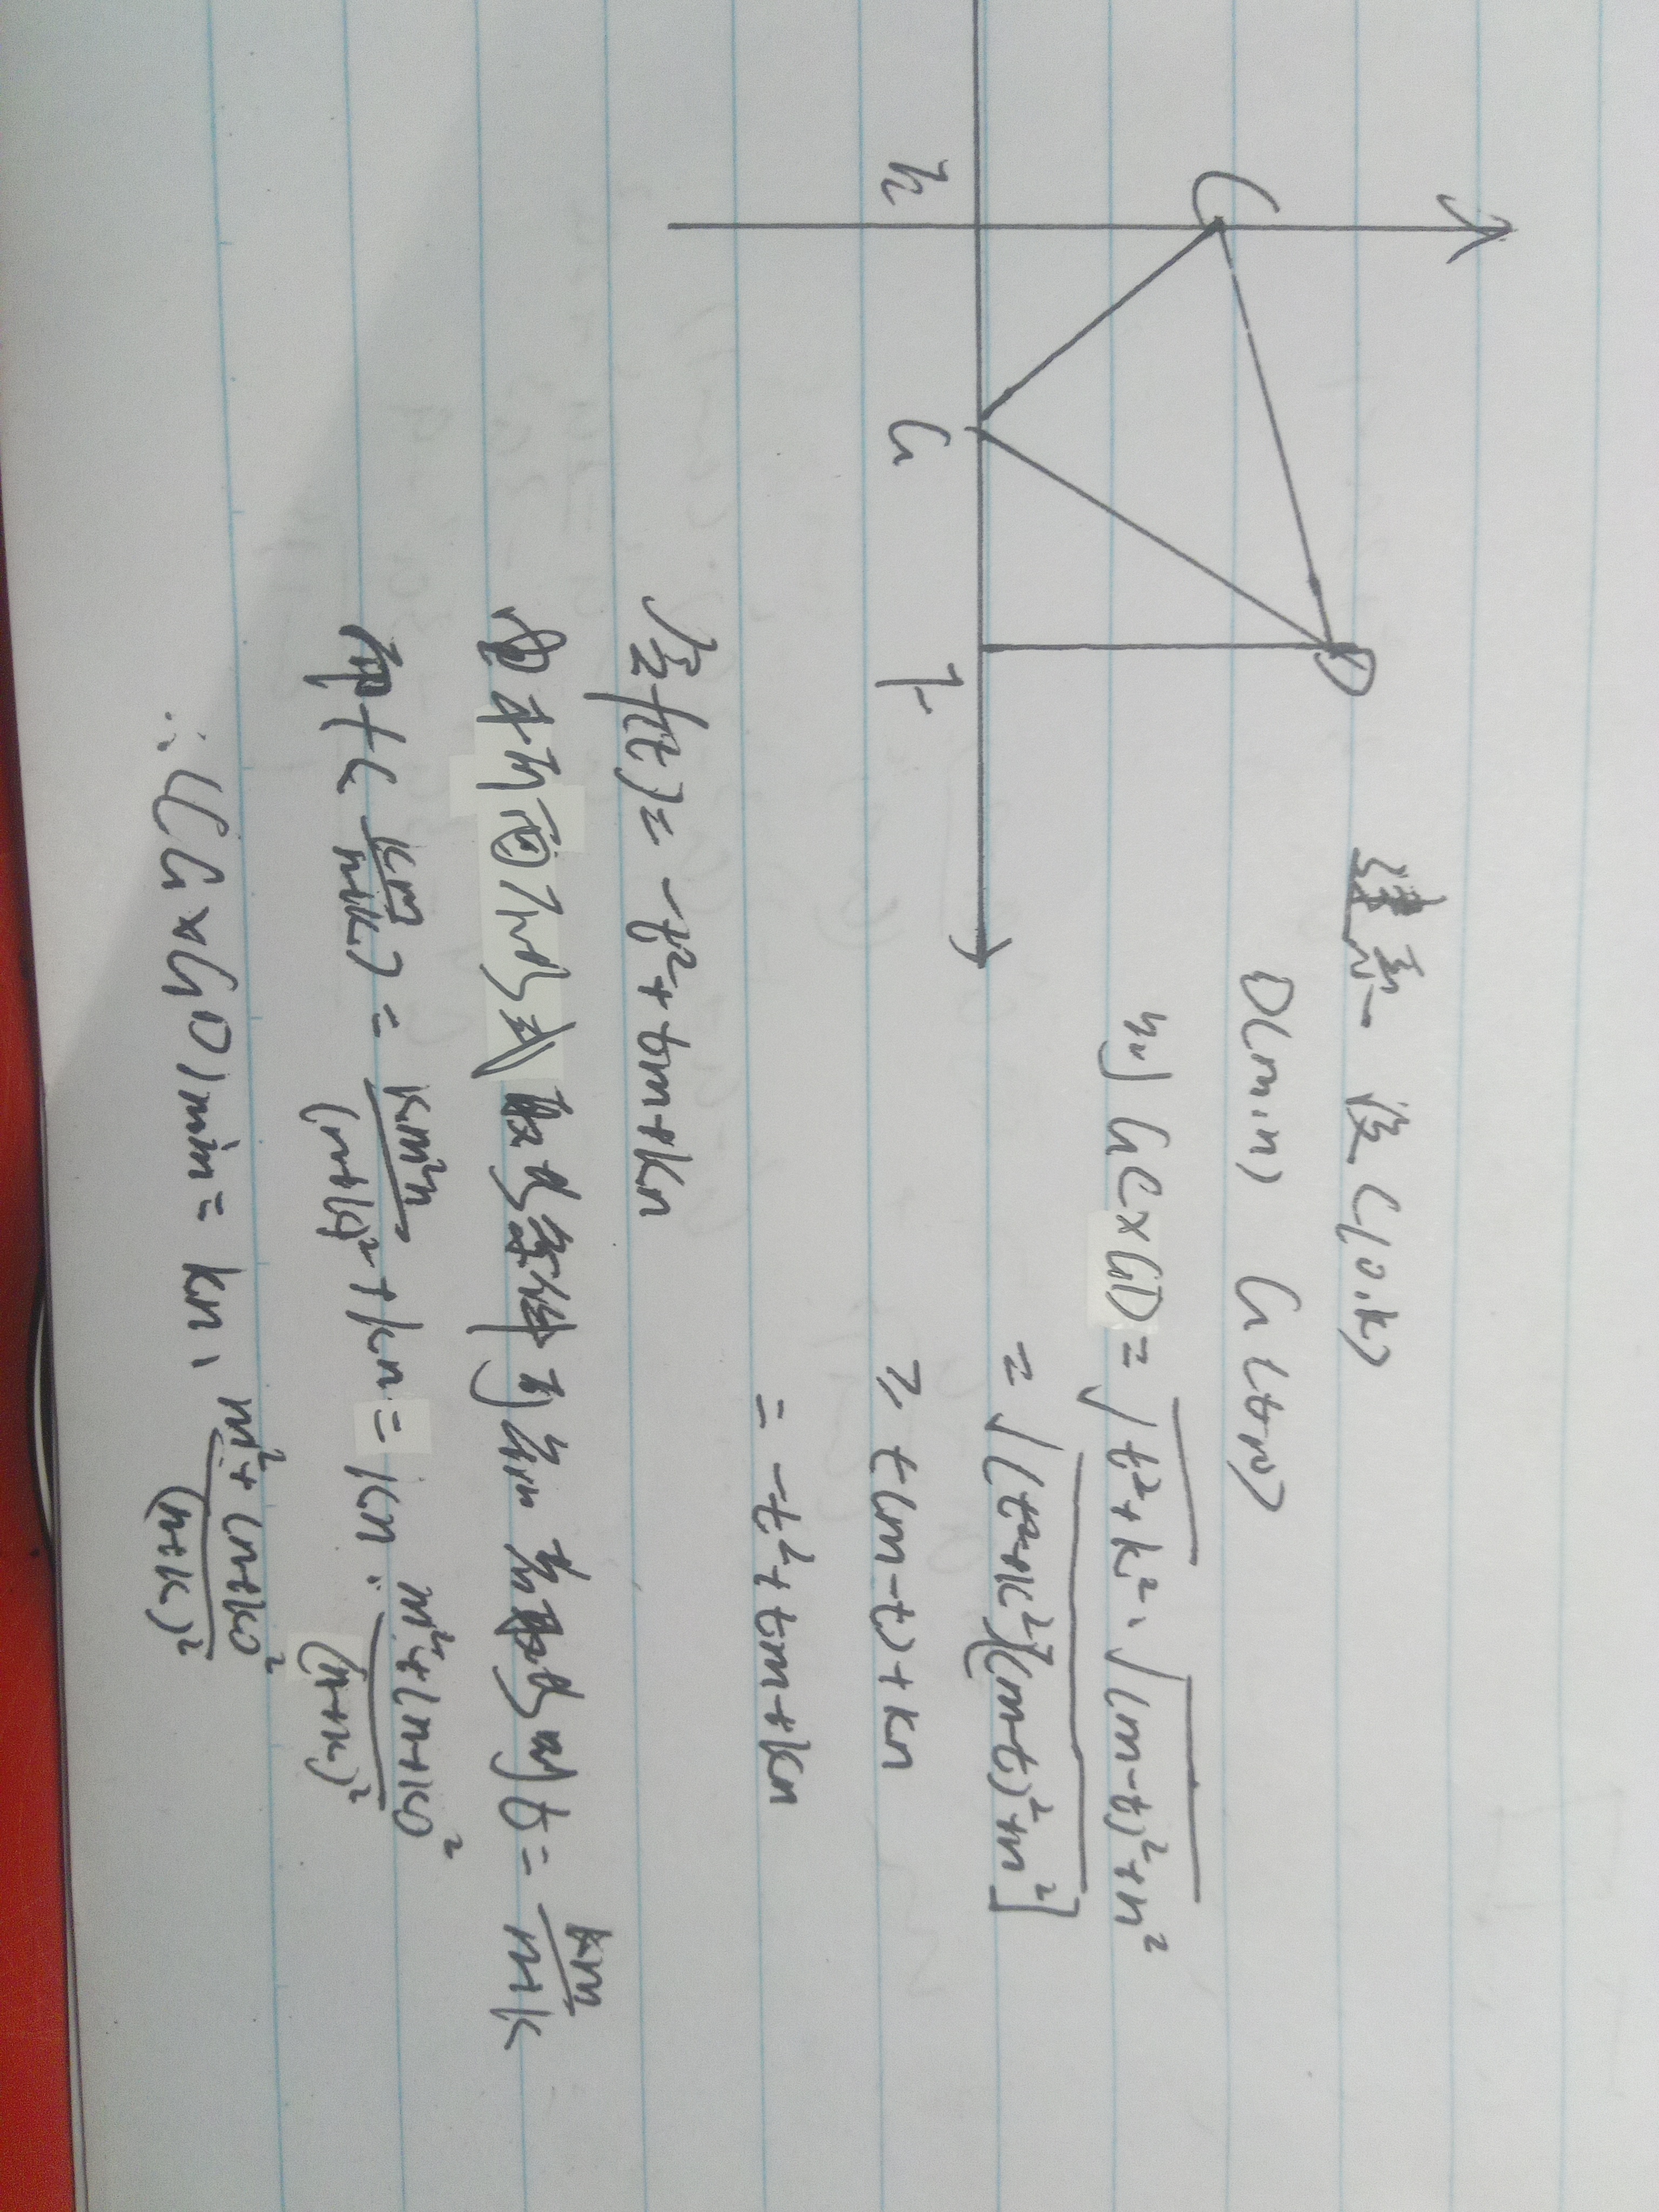 C
D
h G F
建系 设C(0,k)
D(m,n) G(t,0)
则GC×GD=√t²+k²·√(m-t)²+n²
=√(t²+k²)[(m-t)²+n²]
≥ t(m-t)+kn
= -t²+tm+kn
令f(t)= -t²+tm+kn
由柯西不等式取等条件可知 在取等时t= km/n+k
即f(km/n+k)= km²n/(n+k)²+kn=kn·m²+(n+k)²/(n+k)²
∴(CG×GD)min= kn·m²+(n+k)²/(n+k)²